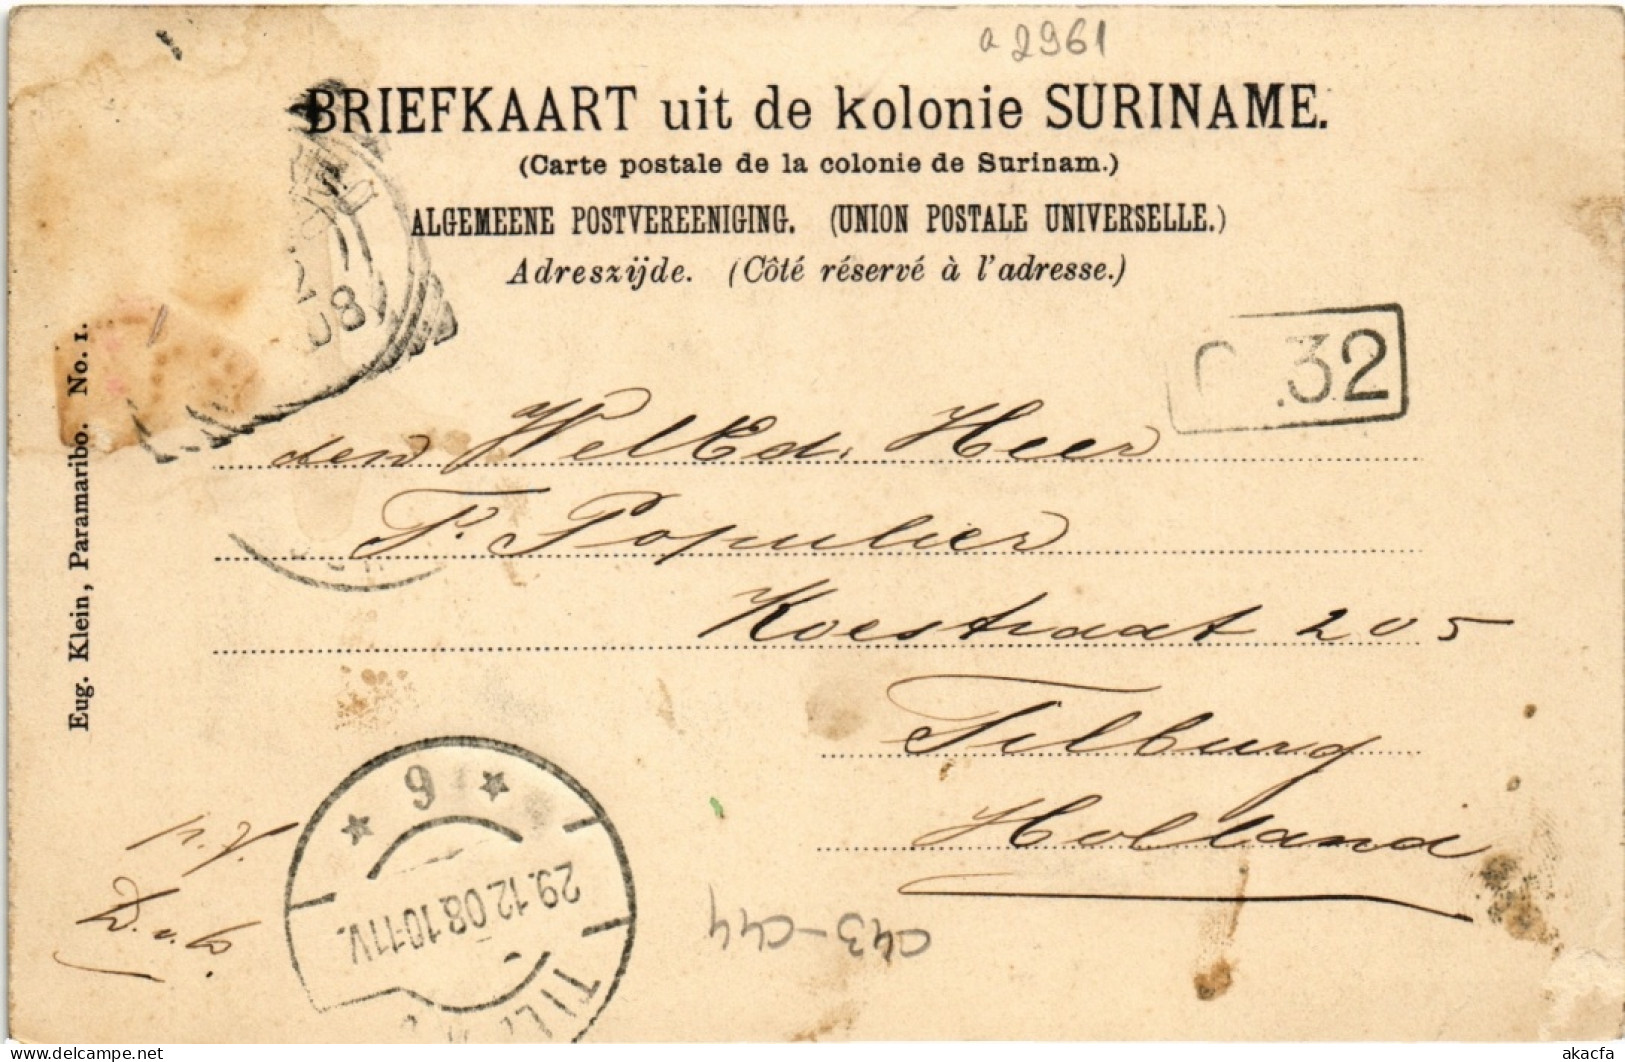 a 2961
BRIEFKAART uit de kolonie SURINAME.
(Carte postale de la colonie de Surinam.)
ALGEMEENE POSTVEREENIGING. (UNION POSTALE UNIVERSELLE.)
Adreszijde. (Côté réservé à l'adresse.)
08
.32
den WelEd. Heer
P. Populier
Koestraat 205
Tilburg
Holland
Eug. Klein, Paramaribo. No. 1.
p.f.
9
29.12.08.10-11V.
TIL
C43-C44
delcampe.net
akacfa